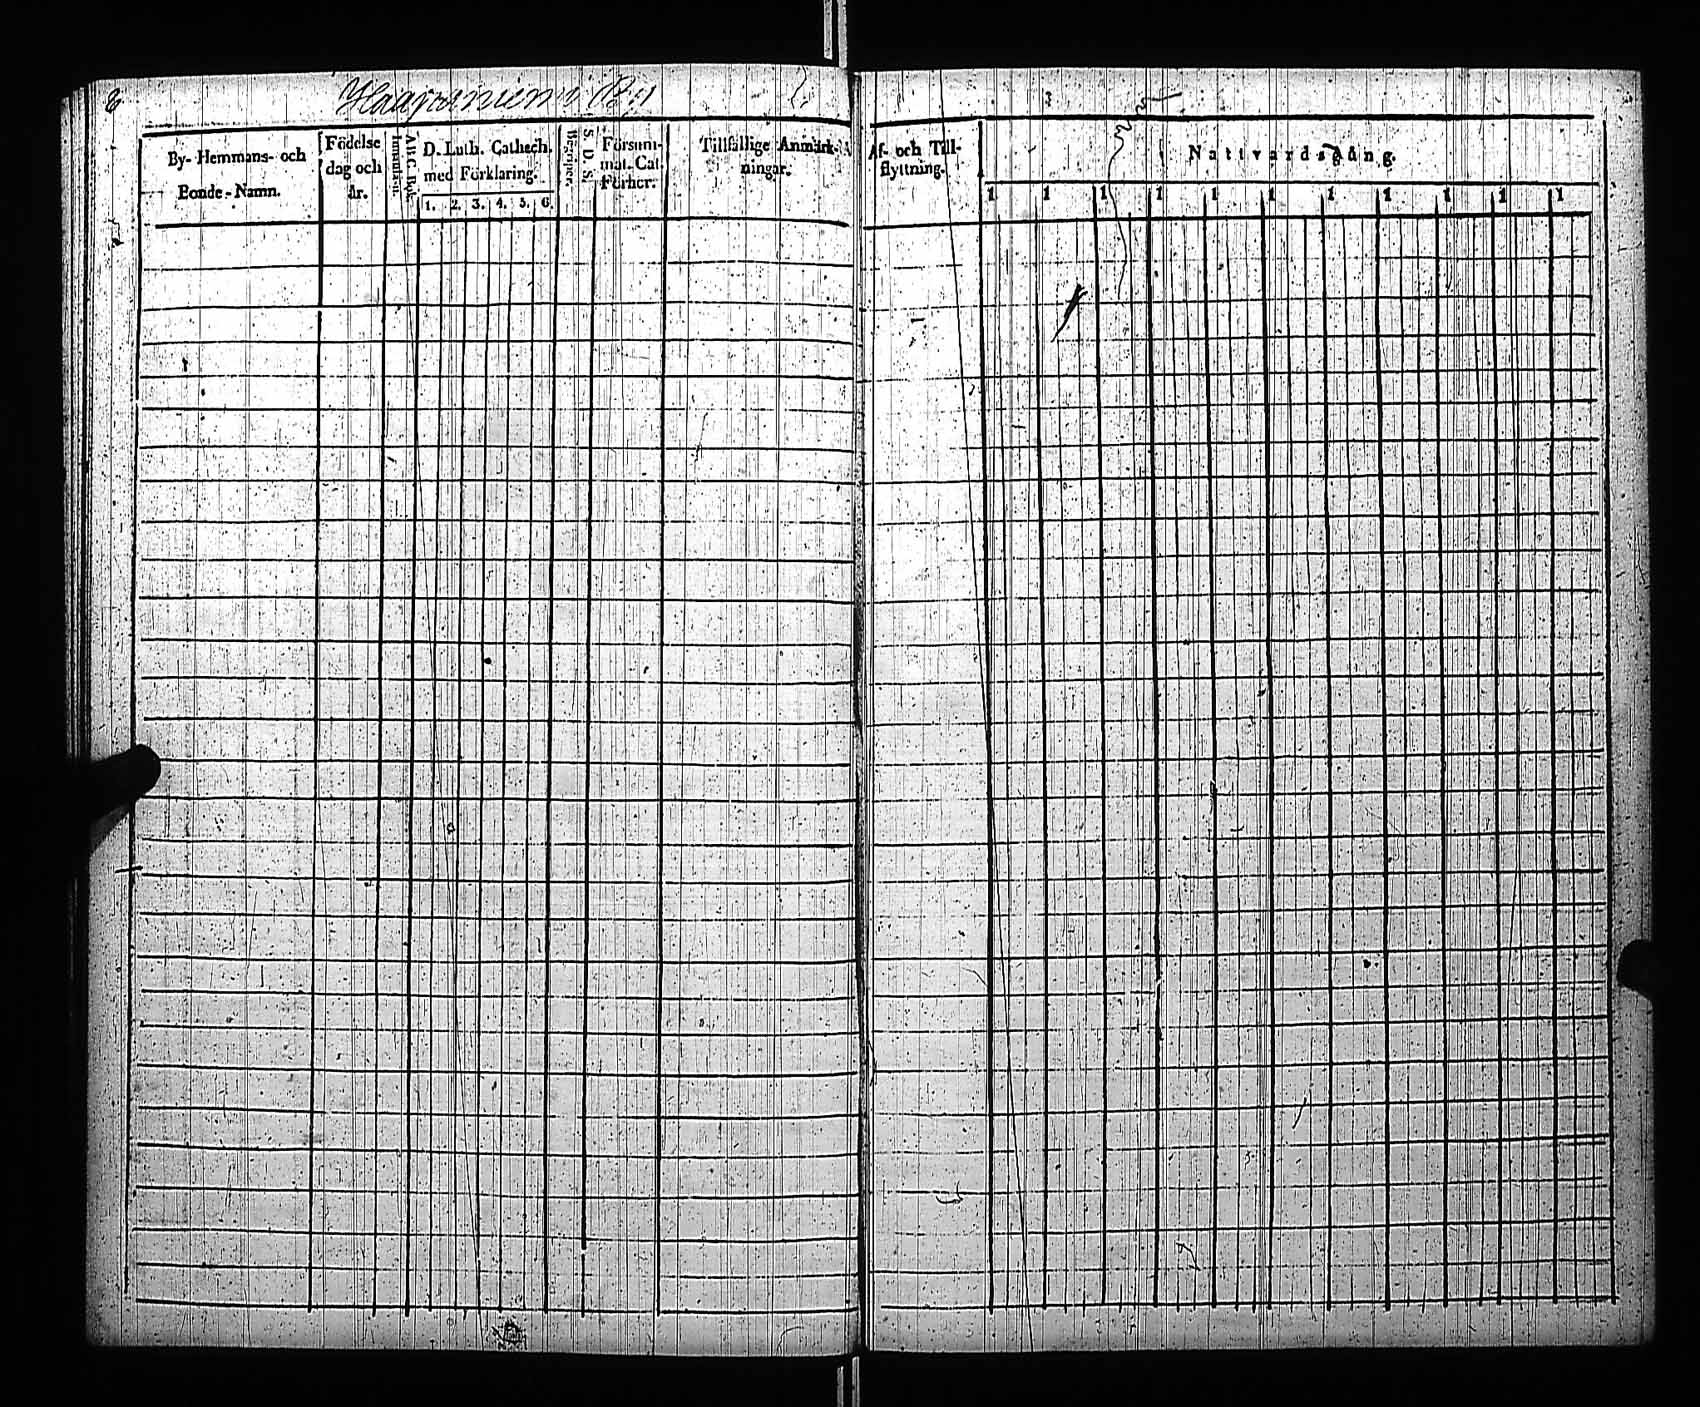 Haapaniemi By
By- Hemmans- och
Bonde-Namn.
Födelse
dag och
år.
A B C Bok.
Innantill.
D. Luth. Cathech.
med Förklaring.
1. 2. 3. 4. 5. 6.
S. D. S.
Begriper.
Försum-
mat. Cat.
Förhör.
Tillfällige Anmärk-
ningar.
Af- och Till-
flyttning.
Nattvardsgång.
1 1 1 1 1 1 1 1 1 1 1